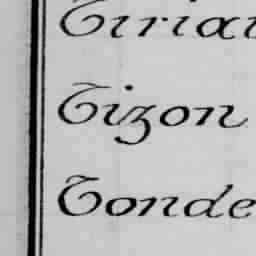 Tiriai
Tizon
Tonde